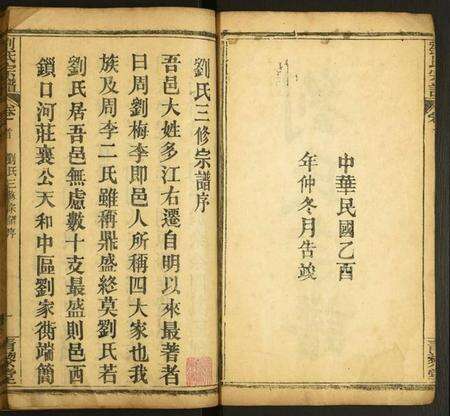 中華民國乙酉
年仲冬月告竣
劉氏三修宗譜序
吾邑大姓多江右遷自明以來最著者
曰周劉梅李即邑人所稱四大家也我
族及周李二氏雖稱鼎盛終莫劉氏若
劉氏居吾邑無慮數十支最盛則邑西
鎖口河莊襄公天和中區劉家衖端簡
劉氏宗譜
卷首
劉氏三修宗譜序